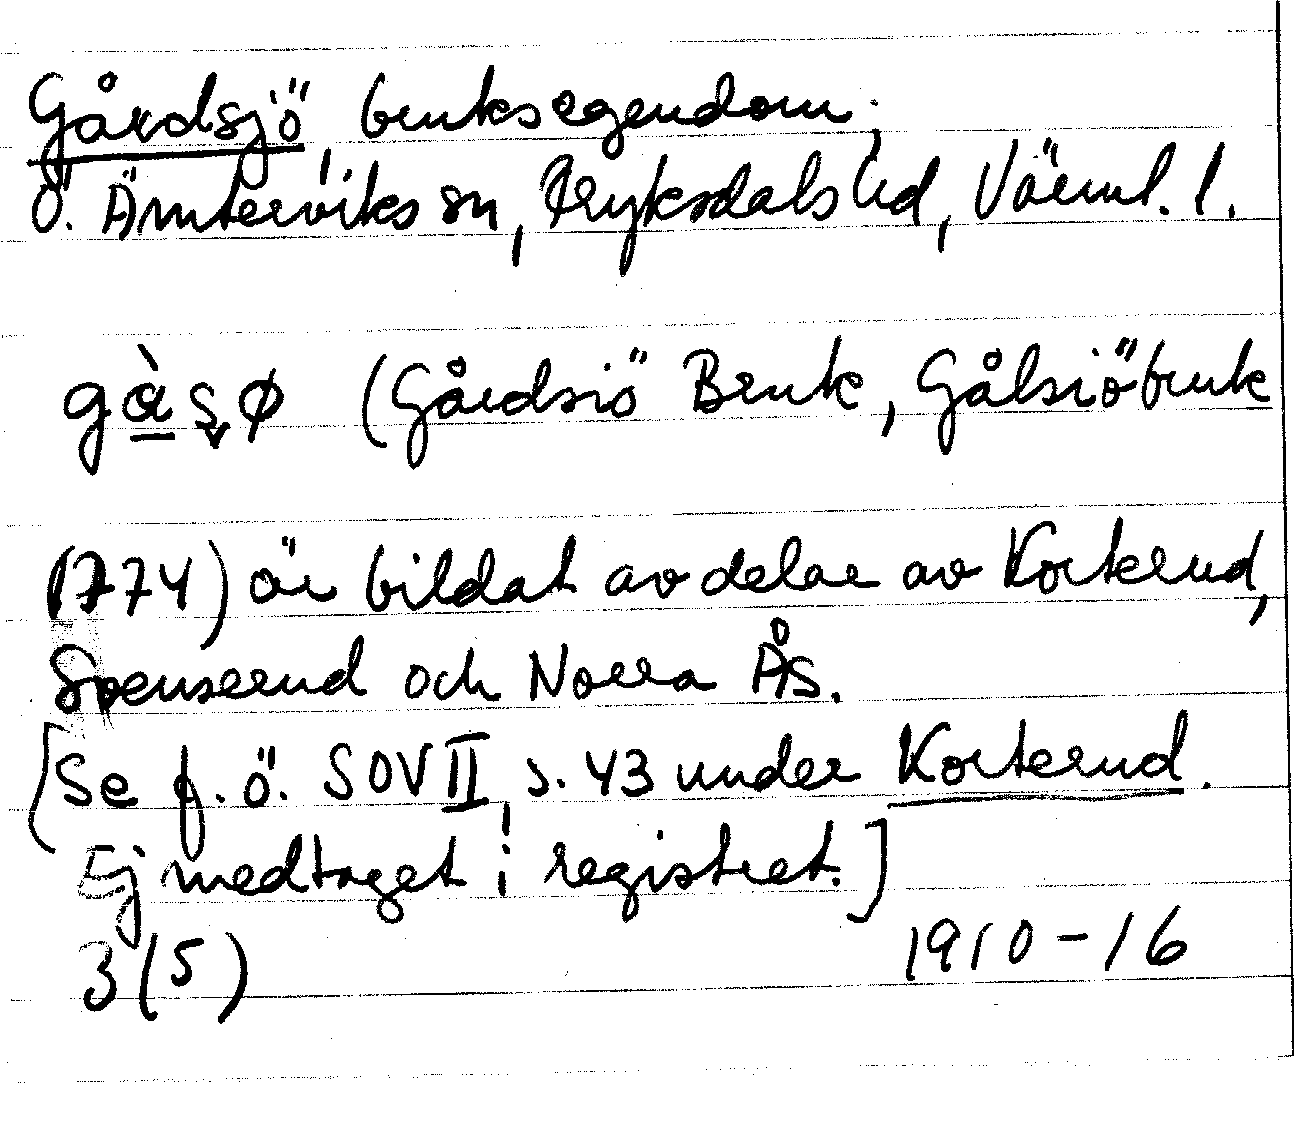 Gårdsjö, bruksegendom,
Ö. Ämterviks sn, Fryksdals hd, Värml. l.
gàsø (Gårdsiö Bruk, Gålsiöbruk
1774) är bildat av delar av Korterud,
Spenserud och Norra Ås.
[Se f. ö. SOV II, s. 43 under Korterud.
Ej medtaget i registret.]
3(5) 1910-16